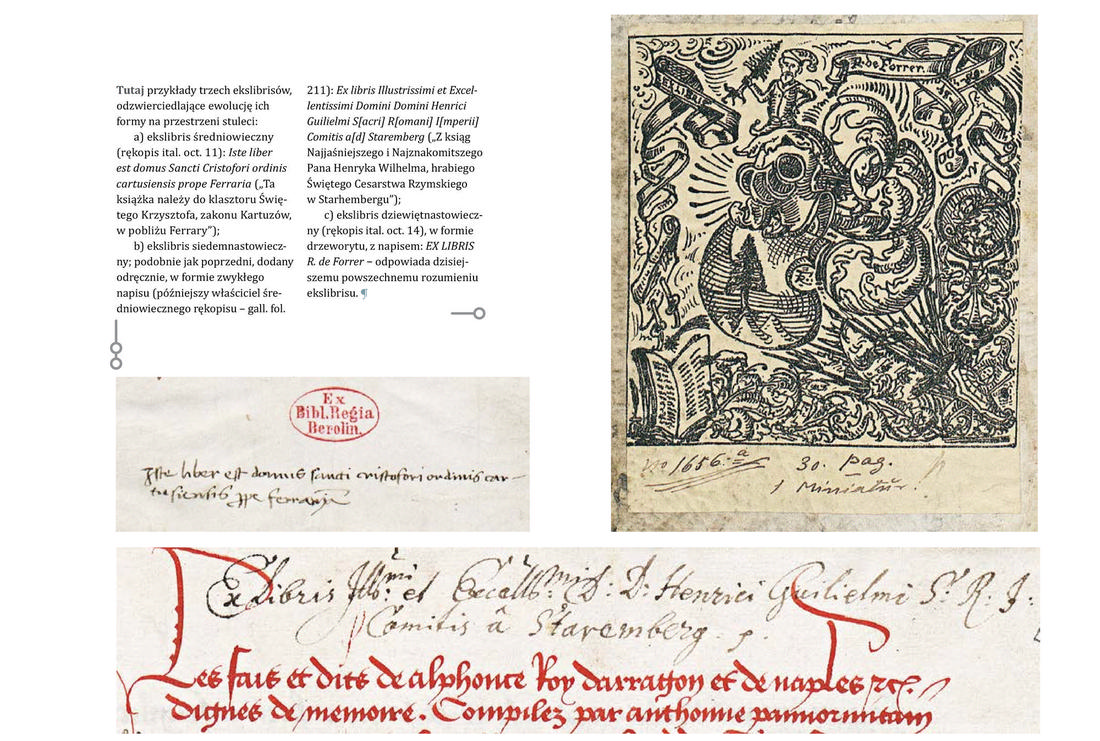 Tutaj przykłady trzech ekslibrisów,
odzwierciedlające ewolucję ich
formy na przestrzeni stuleci:
a) ekslibris średniowieczny
(rękopis ital. oct. 11): Iste liber
est domus Sancti Cristofori ordinis
cartusiensis prope Ferraria („Ta
książka należy do klasztoru Świę-
tego Krzysztofa, zakonu Kartuzów,
w pobliżu Ferrary”);
b) ekslibris siedemnastowiecz-
ny; podobnie jak poprzedni, dodany
odręcznie, w formie zwykłego
napisu (późniejszy właściciel śre-
dniowiecznego rękopisu – gall. fol.
211): Ex libris Illustrissimi et Excel-
lentissimi Domini Domini Henrici
Guilielmi S[acri] R[omani] I[mperii]
Comitis a[d] Staremberg („Z ksiąg
Najjaśniejszego i Najznakomitszego
Pana Henryka Wilhelma, hrabiego
Świętego Cesarstwa Rzymskiego
w Starhembergu”);
c) ekslibris dziewiętnastowiecz-
ny (rękopis ital. oct. 14), w formie
drzeworytu, z napisem: EX LIBRIS
R. de Forrer – odpowiada dzisiej-
szemu powszechnemu rozumieniu
ekslibrisu. ¶
EX LIBRIS
R. de Forrer
No 1656.a
30. pag.
1 Miniatur!
Ex
Bibl. Regia
Berolin.
Iste liber est domus sancti cristofori ordinis car-
tusiensis ppe ferraria
Ex Libris Illmi: et Excellmi: D: D: Henrici Guilielmi S. R. J.
Comitis â Staremberg. p.
Les fais et dits de alphonce Roy darragon et de naples etc.
dignes de memoire. Compilez par anthoine pannormitain